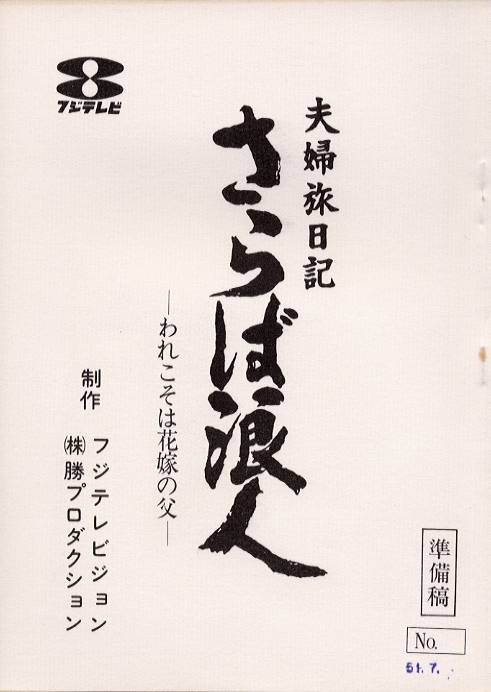 フジテレビ
夫婦旅日記
さらば浪人
―われこそは花嫁の父―
制作 フジテレビジョン
㈱勝プロダクション
準備稿
No.
51.7.